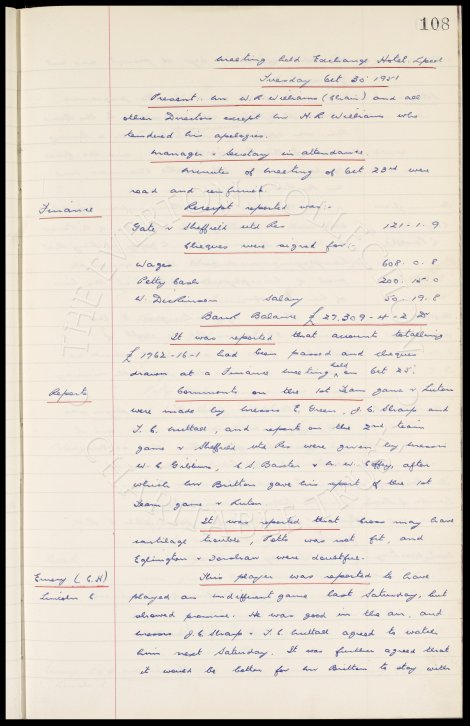 108
Meeting held Exchange Hotel L'pool
Tuesday Oct 30 1951
Present. Mr W.R Williams (Chair) and all
other Directors except Mr H.R Williams who
tendered his apologies.
Manager & Secretary in attendance.
Minutes of meeting of Oct 23rd were
read and confirmed.
Finance
Receipt reported was:-
Gate v Sheffield Utd Res 121-1-9
Cheques were signed for:-
Wages 608.0.8
Petty Cash 200.15.0
W. Dickinson Salary 50.19.8
Bank Balance £27,309-4-2 Dr
It was reported that accounts totalling
£1762-16-1 had been passed and cheques
drawn at a Finance meeting held on Oct 25.
Reports
Comments on the 1st Team game v Luton
were made by Messrs E. Green, J.C. Sharp and
T.C. Nuttall, and reports on the 2nd team
game v Sheffield Utd Res were given by Messrs
W.C. Gibbins, C.S. Baxter & W. Coffey, after
which Mr Britton gave his report of the 1st
Team game v Luton.
It was reported that may have
cartilage trouble, Potts was not fit, and
Eglington & Donovan were doubtful.
Emery (C.H)
Lincoln C
This player was reported to have
played an indifferent game last Saturday, but
showed promise. He was good in the air, and
Messrs J.C Sharp & T.C. Nuttall agreed to watch
him next Saturday. It was further agreed that
it would be better for Mr Britton to stay with
THE EVERTON COLLECTION
CHARITABLE TRUST